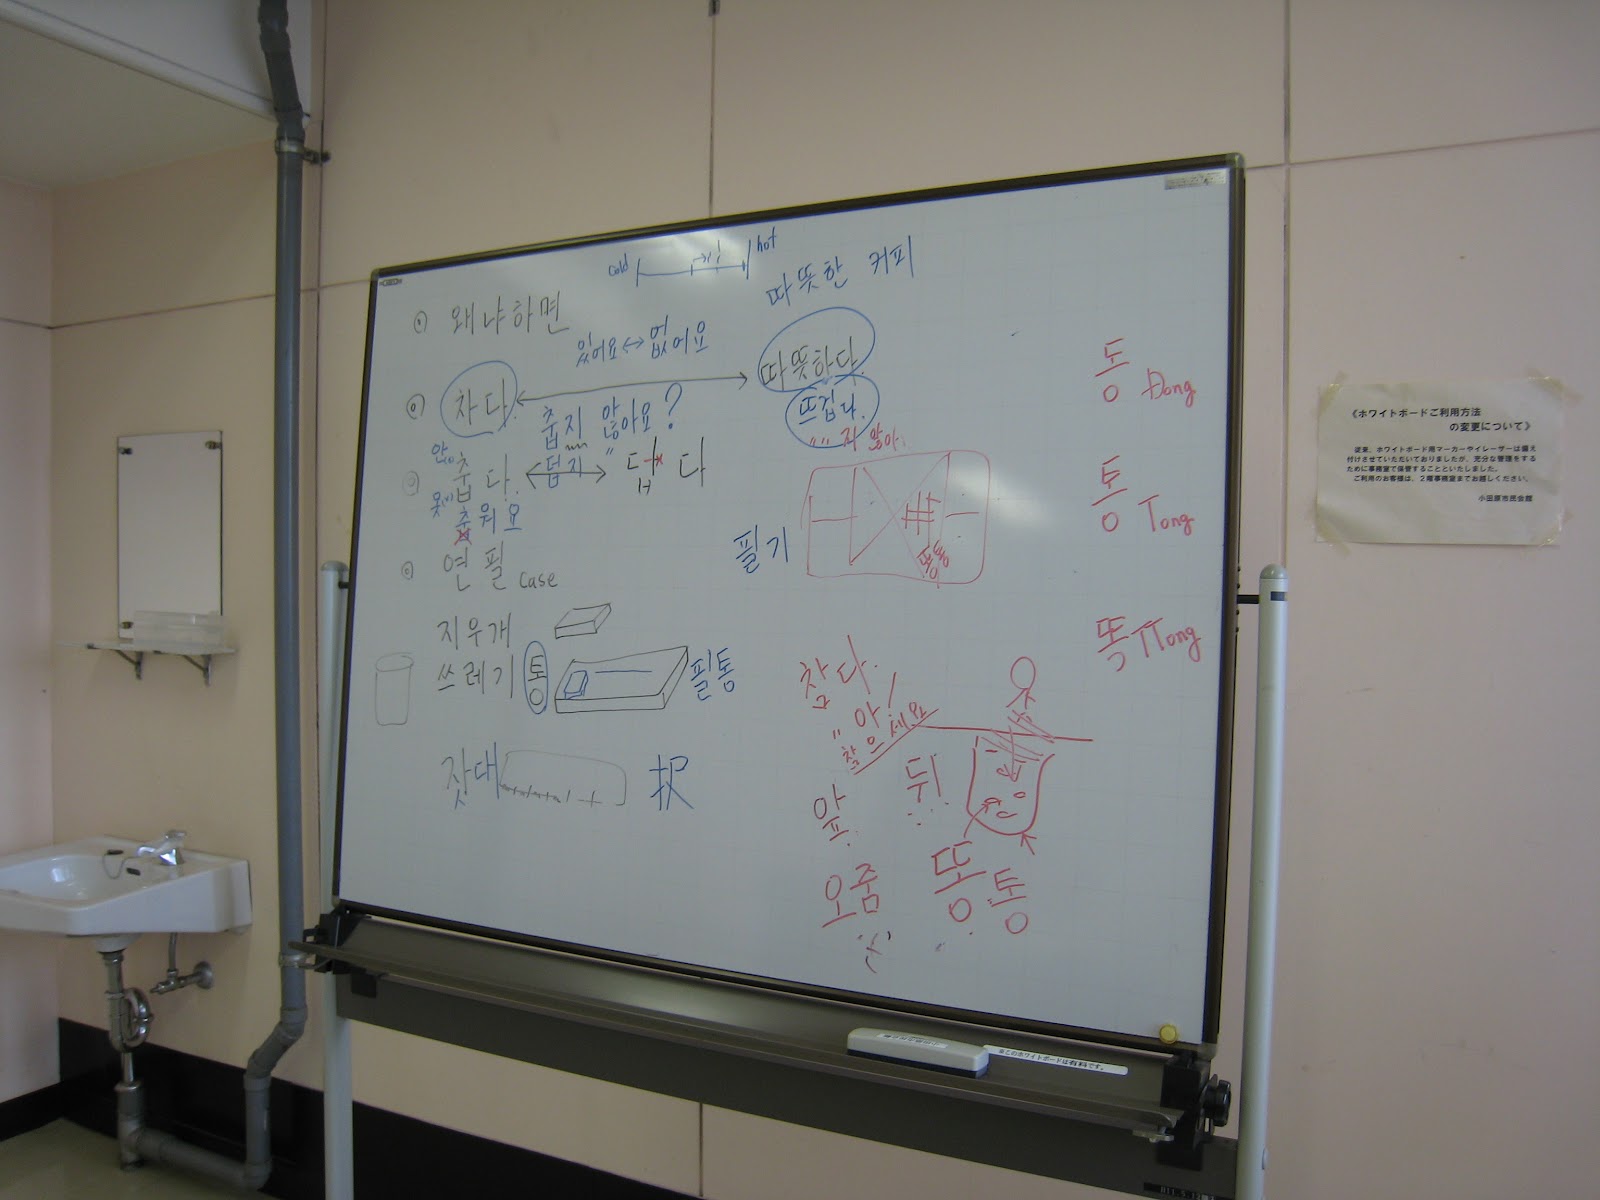 cold hot
따뜻한 커피
왜냐하면
있어요 ↔ 없어요
따뜻하다
차다.
뜨겁다.
춥지 않아요?
"" 지 않아.
안
춥다.
덥지"
덥다
못
춥워요
연필 case
필기
똥통
지우개
쓰레기통
필통
잣대
択
동 Dong
통 Tong
똑 TTong
참다.
" 아!
참으세요
앞.
뒤
오줌
똥통
《ホワイトボードご利用方法
の変更について》
従来、ホワイトボード用マーカーやイレーザーは備え
付けさせていただいておりましたが、充分な管理をする
ために事務室で保管することといたしました。
ご利用のお客様は、2階事務室までお越しください。
小田原市民会館
※このホワイトボードは有料です。